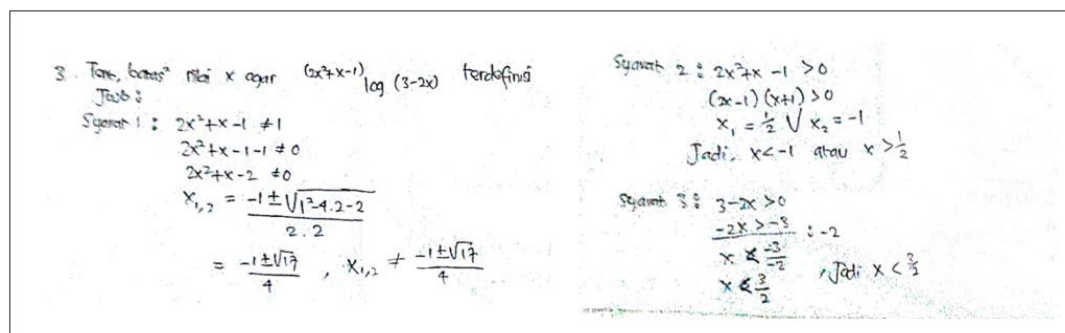 3. Tent, batas² nilai x agar (2x²+x-1) log (3-2x) terdefinisi
Jawab :
Syarat 1 : 2x²+x-1 ≠ 1
2x²+x-1-1 ≠ 0
2x²+x-2 ≠ 0
x₁,₂ = (-1±√(1²-4.2-2))/(2.2)
= (-1±√17)/4 , x₁,₂ ≠ (-1±√17)/4
Syarat 2 : 2x²+x-1 > 0
(2x-1) (x+1) > 0
x₁ = 1/2 V x₂ = -1
Jadi, x < -1 atau x > 1/2
Syarat 3 : 3-2x > 0
-2x > -3 : -2
x < -3/-2
x < 3/2 , Jadi x < 3/2